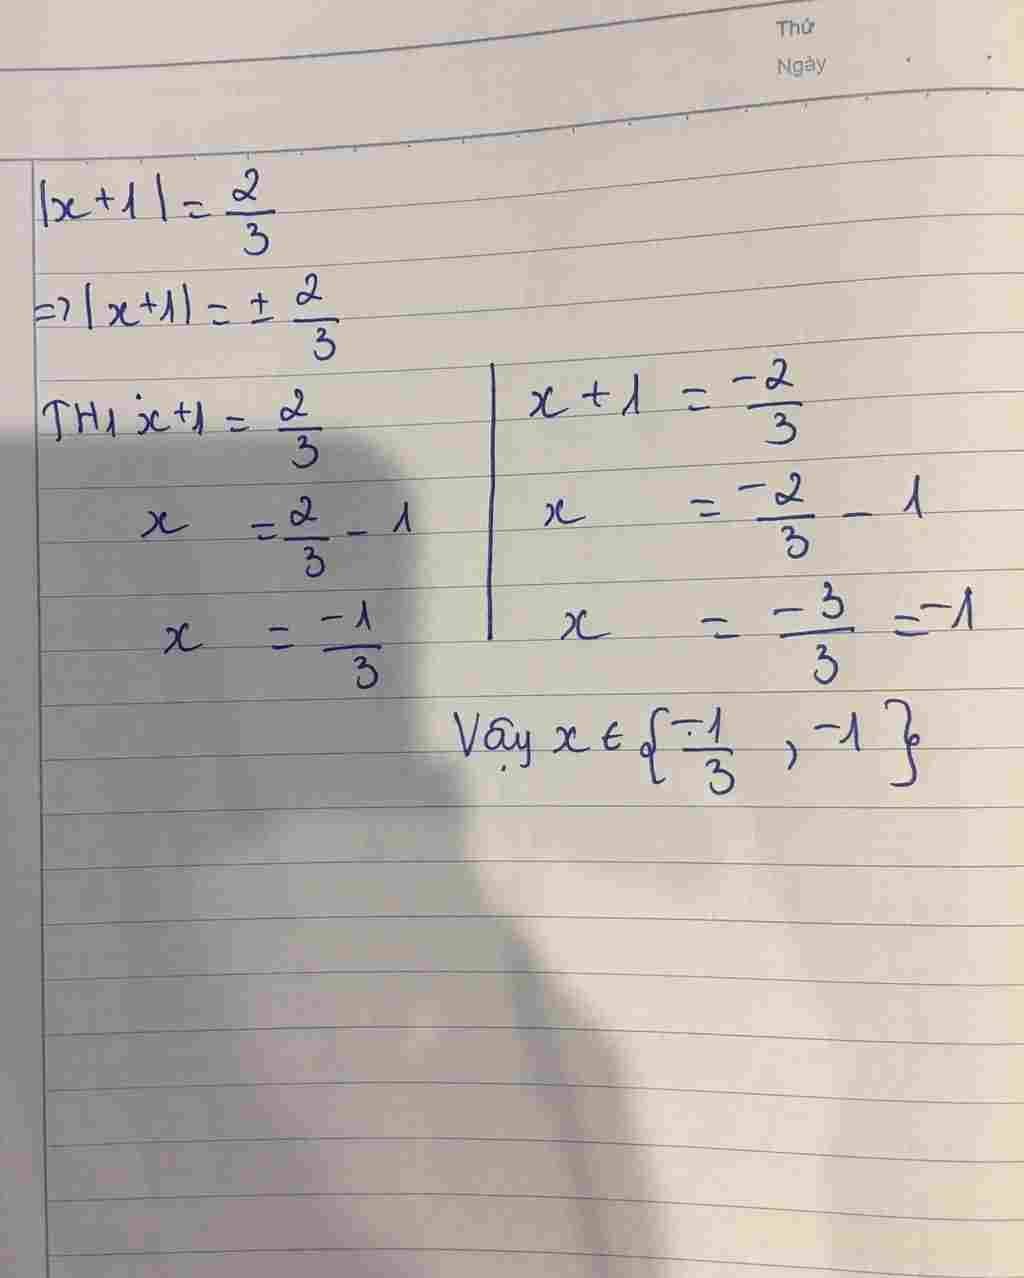 Thứ
Ngày
|x+1| = 2/3
=> |x+1| = ± 2/3
TH1 x+1 = 2/3
x = 2/3 - 1
x = -1/3
x + 1 = -2/3
x = -2/3 - 1
x = -3/3 = -1
Vậy x ∈ { -1/3 , -1 }